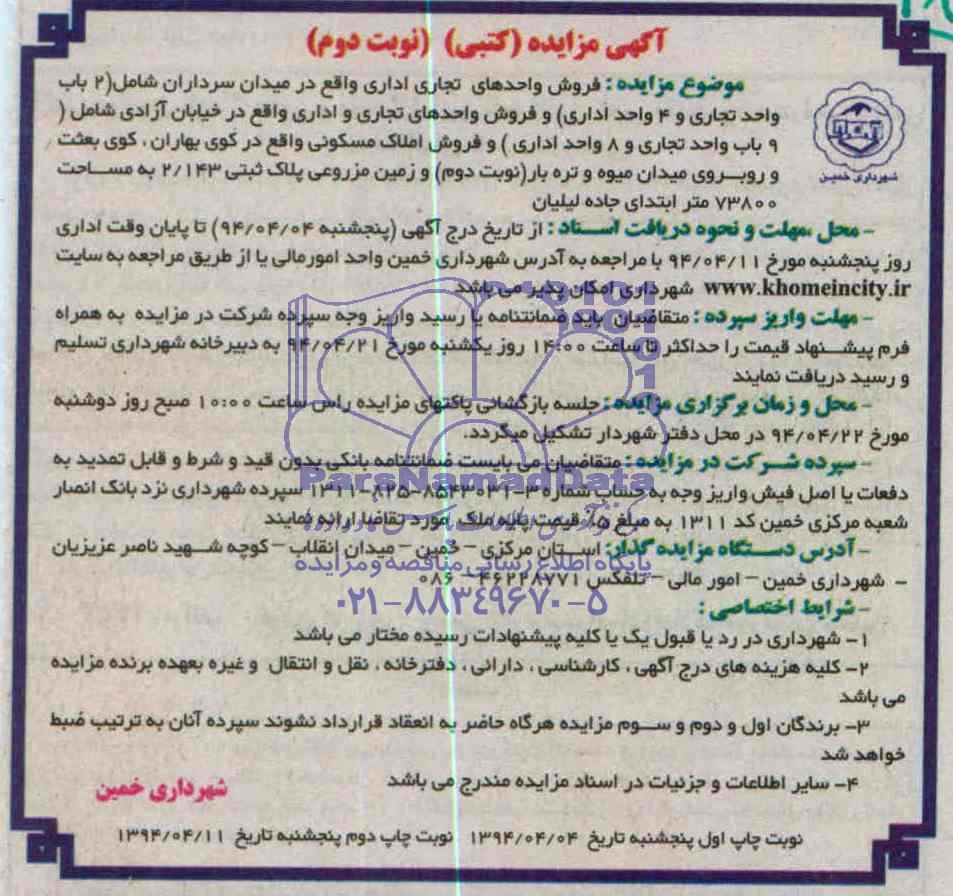 آگهی مزایده (کتبی) (نوبت دوم)
موضوع مزایده : فروش واحدهای تجاری اداری واقع در میدان سرداران شامل(۲ باب
واحد تجاری و ۴ واحد اداری) و فروش واحدهای تجاری و اداری واقع در خیابان آزادی شامل (
۹ باب واحد تجاری و ۸ واحد اداری ) و فروش املاک مسکونی واقع در کوی بهاران ، کوی بعثت
و روبـروی میدان میوه و تره بار(نوبت دوم) و زمین مزروعی پلاک ثبتی ۲/۱۴۳ به مساحت
۷۳۸۰۰ متر ابتدای جاده لیلیان
شهرداری خمین
- محل ،مهلت و نحوه دریافت اسناد : از تاریخ درج آگهی (پنجشنبه ۹۴/۰۴/۰۴) تا پایان وقت اداری
روز پنجشنبه مورخ ۹۴/۰۴/۱۱ با مراجعه به آدرس شهرداری خمین واحد امورمالی یا از طریق مراجعه به سایت
www.khomeincity.ir شهرداری امکان پذیر می باشد
- مهلت واریز سپرده : متقاضیان باید ضمانتنامه یا رسید واریز وجه سپرده شرکت در مزایده به همراه
فرم پیشنهاد قیمت را حداکثر تا ساعت ۱۴:۰۰ روز یکشنبه مورخ ۹۴/۰۴/۲۱ به دبیرخانه شهرداری تسلیم
و رسید دریافت نمایند
- محل و زمان برگزاری مزایده : جلسه بازگشائی پاکتهای مزایده راس ساعت ۱۰:۰۰ صبح روز دوشنبه
مورخ ۹۴/۰۴/۲۲ در محل دفتر شهردار تشکیل میگردد.
- سپرده شرکت در مزایده : متقاضیان می بایست ضمانتنامه بانکی بدون قید و شرط و قابل تمدید به
دفعات یا اصل فیش واریز وجه به حساب شماره ۳-۸۵۴۳۰۳۱-۸۲۵-۱۳۱۱ سپرده شهرداری نزد بانک انصار
شعبه مرکزی خمین کد ۱۳۱۱ به مبلغ ۵٪ قیمت پایه ملک مورد تقاضا ارائه نمایند
- آدرس دستگاه مزایده گذار: استان مرکزی – خمین – میدان انقلاب – کوچه شهید ناصر عزیزیان
– شهرداری خمین – امور مالی – تلفکس ۴۶۲۲۸۷۷۱ – ۰۸۶
- شرایط اختصاصی :
۱- شهرداری در رد یا قبول یک یا کلیه پیشنهادات رسیده مختار می باشد
۲- کلیه هزینه های درج آگهی ، کارشناسی ، دارائی ، دفترخانه ، نقل و انتقال و غیره بعهده برنده مزایده
می باشد
۳- برندگان اول و دوم و سوم مزایده هرگاه حاضر به انعقاد قرارداد نشوند سپرده آنان به ترتیب ضبط
خواهد شد
۴- سایر اطلاعات و جزئیات در اسناد مزایده مندرج می باشد
شهرداری خمین
نوبت چاپ اول پنجشنبه تاریخ ۱۳۹۴/۰۴/۰۴ نوبت چاپ دوم پنجشنبه تاریخ ۱۳۹۴/۰۴/۱۱
ParsNamadData
پایگاه اطلاع رسانی مناقصه و مزایده
۰۲۱-۸۸۳۴۹۶۷۰-۵